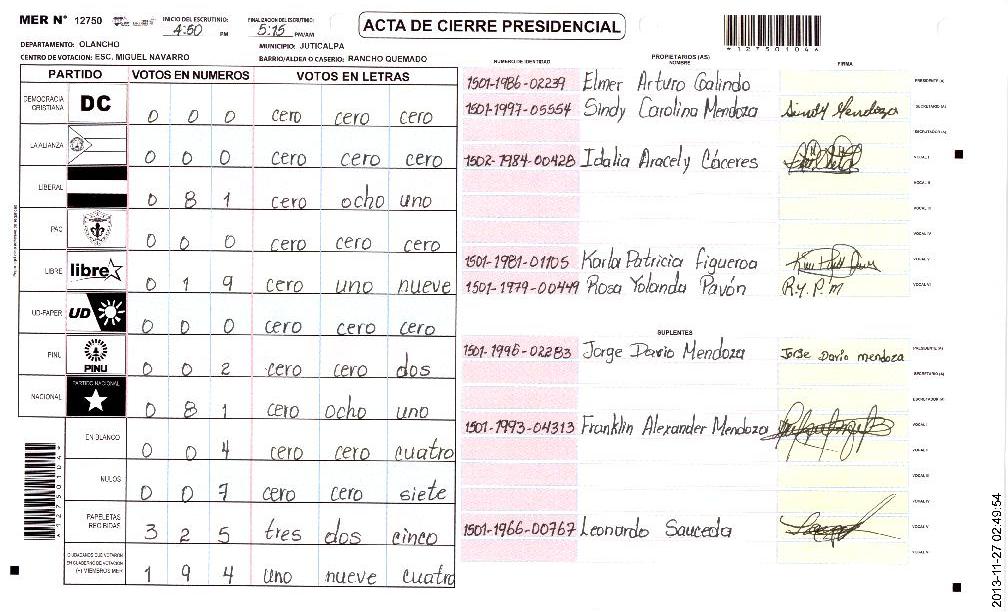 MER N° 12750
INICIO DEL ESCRUTINIO: 4:50 PM
FINALIZACION DEL ESCRUTINIO: 5:15 PM/AM
ACTA DE CIERRE PRESIDENCIAL
*12750104*
DEPARTAMENTO: OLANCHO
MUNICIPIO: JUTICALPA
CENTRO DE VOTACION: ESC. MIGUEL NAVARRO
BARRIO/ALDEA O CASERIO: RANCHO QUEMADO
PARTIDO VOTOS EN NUMEROS VOTOS EN LETRAS
DEMOCRACIA CRISTIANA DC 0 0 0 cero cero cero
LA ALIANZA 0 0 0 cero cero cero
LIBERAL 0 8 1 cero ocho uno
PAC 0 0 0 cero cero cero
LIBRE libre 0 1 9 cero uno nueve
UD-FAPER UD 0 0 0 cero cero cero
PINU PINU 0 0 2 cero cero dos
NACIONAL PARTIDO NACIONAL 0 8 1 cero ocho uno
EN BLANCO 0 0 4 cero cero cuatro
NULOS 0 0 7 cero cero siete
PAPELETAS RECIBIDAS 3 2 5 tres dos cinco
CIUDADANOS QUE VOTARON EN CUADERNO DE VOTACION (+) MIEMBROS MER 1 9 4 uno nueve cuatro
*12750104*
NUMERO DE IDENTIDAD PROPIETARIOS (AS) NOMBRE FIRMA
1501-1986-02239 Elmer Arturo Galindo PRESIDENTE (A)
1501-1997-05554 Sindy Carolina Mendoza Sindy Mendoza SECRETARIO (A)
ESCRUTADOR (A)
1502-1984-00428 Idalia Aracely Cáceres VOCAL I
VOCAL II
VOCAL III
VOCAL IV
1501-1981-01105 Karla Patricia Figueroa VOCAL V
1501-1979-00449 Rosa Yolanda Pavón R.Y.P.M VOCAL VI
SUPLENTES
1501-1995-02283 Jorge Dario Mendoza Jorge Dario mendoza PRESIDENTE (A)
SECRETARIO (A)
ESCRUTADOR (A)
1501-1993-04313 Franklin Alexander Mendoza VOCAL I
VOCAL II
VOCAL III
VOCAL IV
1501-1966-00767 Leonardo Sauceda VOCAL V
VOCAL VI
2013-11-27 02:49:54